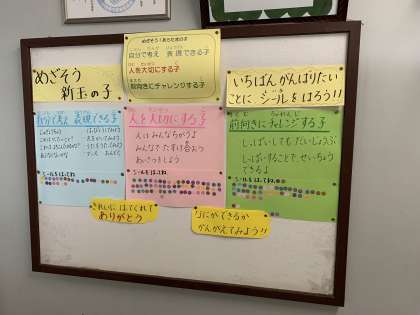 めざそう!あらたまの子
自分で考え 表現できる子
人を大切にする子
前向きにチャレンジする子
めざそう
新玉の子
いちばん がんばりたい
ことに シールをはろう!!
自分で考え 表現できる子
シールをはってね
人を大切にする子
人はみんなちがうよ
みんなで たすけ合おう
あいさつしよう
シールをはってね
前向きにチャレンジする子
しっぱいしても だいじょうぶ
しっぱいすることで、せいちょう
できるよ
シールをはってね
きれいに はってくれて
ありがとう
なにができるか
かんがえてみよう!!